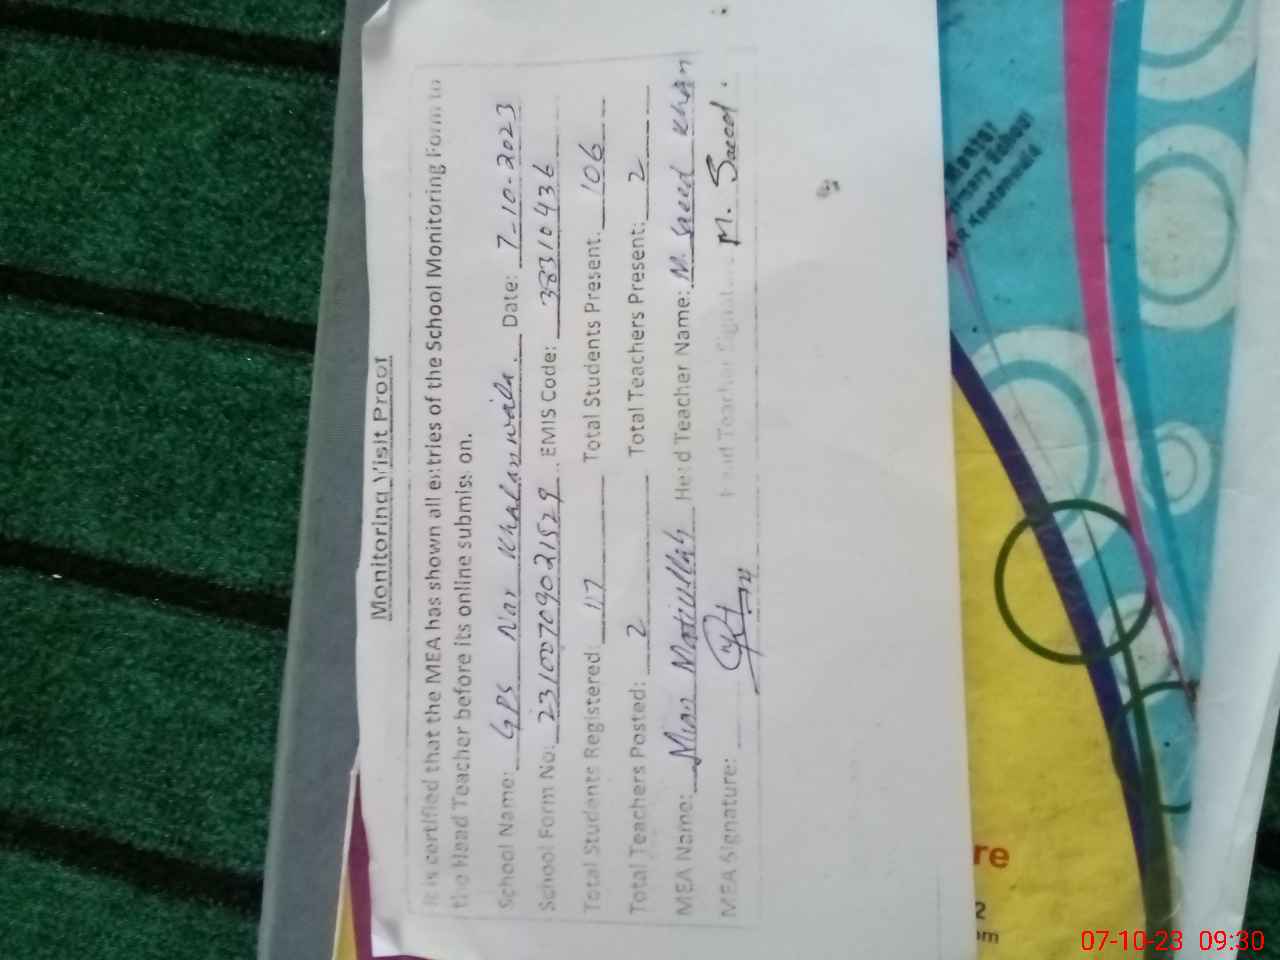 Monitoring Visit Proof
It is certified that the MEA has shown all entries of the School Monitoring Form to
the Head Teacher before its online submission.
School Name: GPS Nar Khalawala. Date: 7-10-2023
School Form No: 2310070902 1529 EMIS Code: 38310436
Total Students Registered: 117 Total Students Present: 106
Total Teachers Posted: 2 Total Teachers Present: 2
MEA Name: Mian Matiullah Head Teacher Name: M. Saeed Khan
MEA Signature: Head Teacher Signature M. Saeed.
re
2
om
07-10-23 09:30